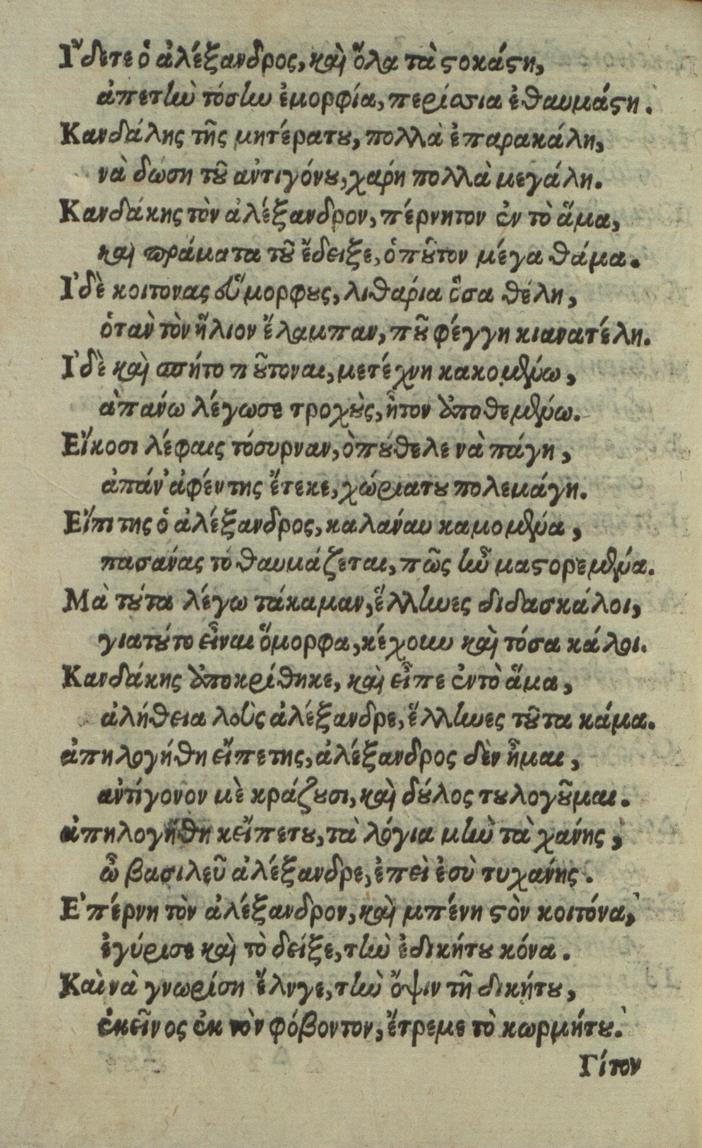 Ἴδετε ὁ ἀλέξανδρος, καὶ ὅλα τὰ στοκάστη,
ἀπετὴν τόσην ἐμορφία, περίσσια ἐθαυμάστη.
Κανδάλης τῆς μητέρατου, πολλὰ ἐπαρακάλη,
νὰ δώση τοῦ ἀντιγόνου, χάρη πολλὰ μεγάλη.
Κανδάκης τὸν ἀλέξανδρον, πέρνητον ἐν τὸ ἅμα,
καὶ πράματα τοῦ ἔδειξε, ὁποῦτον μέγα θάμα.
Ἰδὲ κοιτονας εὔμορφους, λιθαρία ὅσα θέλη,
ὁτὰν τὸν ἥλιον ἔλαμπαν, ποῦ φέγγη κιανατέλη.
Ἰδὲ καὶ σπήτο ποῦτοναι, μετέχνη κακομένω,
ἀπάνω λέγωσε τροχοὺς, ἦτον ὑποθεμένω.
Εἴκοσι λέφαις τόσυρναν, ὁπούθελε νὰ πάγη,
ἀπάν' ἀφέντης ἔτεκε, χώριατου πολεμάγη.
Εἴπι της ὁ ἀλέξανδρος, καλανάυ καμομένα,
πασανάς τὸ θαυμάζεται, πῶς ἦν μαστορεμένα.
Μὰ τούτα λέγω τάκαμαν, ἕλληνες διδασκάλοι,
γιατούτο εἶναι ὄμορφα, κέχουν καὶ τόσα κάλοι.
Κανδάκης ὑποκρίθηκε, καὶ εἶπε ἐντὸ ἅμα,
ἀλήθεια λοὺς ἀλέξανδρε, ἕλληνες τοῦτα κάμα.
ἀπηλογήθη εἴπετης, ἀλέξανδρος δὲν ἦμαι,
ἀντίγονον μὲ κράζουσι, καὶ δούλος τουλογοῦμαι.
ἀπηλογήθη κεἴπετου, τὰ λόγια μὴν τὰ χάνης,
ὦ βασιλεῦ ἀλέξανδρε, ἐπεὶ ἐσὺ τυχάνης.
Ἐπέρνη τὸν ἀλέξανδρον, καὶ μπένη στὸν κοιτόνα,
ἐγύρισε καὶ τὸ δείξε, τὴν ἐδικήτου κόνα.
Καὶ νὰ γνωρίση ἔλνγε, τὴν ὄψιν τῆ δικήτου,
ἐκεῖνος ἐκ τὸν φόβοντον, ἔτρεμε τὸ κωρμήτου.
Γίτον